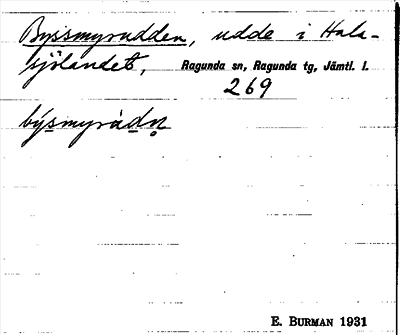 Byssmyrudden, udde i Hala-
sjölandet, Ragunda sn, Ragunda tg, Jämtl. l.
269
E. BURMAN 1931